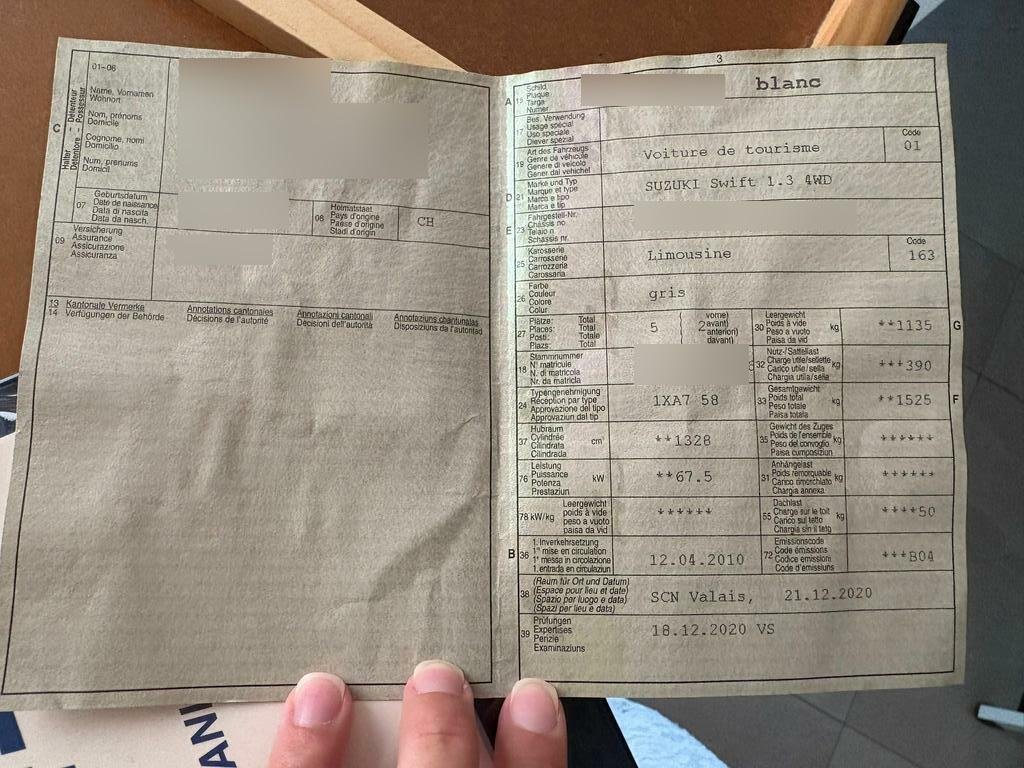 01–06
Name, Vornamen
Wohnort
Nom, prénoms
Domicile
Cognome, nomi
Domicilio
Num, prenums
Domicil
C
Halter – Détenteur
Detentore – Possessur
07
Geburtsdatum
Date de naissance
Data di nascita
Data da nasch.
08
Heimatstaat
Pays d'origine
Paese d'origine
Stadi d'origin
CH
09
Versicherung
Assurance
Assicurazione
Assicuranza
13
14
Kantonale Vermerke
Verfügungen der Behörde
Annotations cantonales
Décisions de l'autorité
Annotazioni cantonali
Decisioni dell'autorità
Annotaziuns chantunalas
Disposiziuns da l'autoritad
3
A
15
Schild
Plaque
Targa
Numer
blanc
17
Bes. Verwendung
Usage spécial
Uso speciale
Diever spezial
19
Art des Fahrzeugs
Genre de véhicule
Genere di veicolo
Gener dal vehichel
Voiture de tourisme
Code
01
D
21
Marke und Typ
Marque et type
Marca e tipo
Marca e tip
SUZUKI Swift 1.3 4WD
E
23
Fahrgestell-Nr.
Châssis no
Telaio n
Schassis nr.
25
Karosserie
Carrosserie
Carrozzeria
Carossaria
Limousine
Code
163
26
Farbe
Couleur
Colore
Colur
gris
27
Plätze: Total
Places: Total
Posti: Totale
Plazs: Total
5
2
vorne)
avant)
anteriori)
davant)
30
Leergewicht
Poids à vide
Peso a vuoto
Paisa da vid
kg
**1135
G
18
Stammnummer
N° matricule
N. di matricola
Nr. da matricla
32
Nutz-/Sattellast
Charge utile/sellette
Carico utile/sella
Chargia utila/sella
kg
***390
24
Typengenehmigung
Réception par type
Approvazione del tipo
Approvaziun dal tip
1XA7 58
33
Gesamtgewicht
Poids total
Peso totale
Paisa totala
kg
**1525
F
37
Hubraum
Cylindrée
Cilindrata
Cilindrada
cm³
**1328
35
Gewicht des Zuges
Poids de l'ensemble
Peso del convoglio
Paisa cumposiziun
kg
******
76
Leistung
Puissance
Potenza
Prestaziun
kW
**67.5
31
Anhängelast
Poids remorquable
Carico rimorchiato
Chargia annexa
kg
******
78 kW/kg
Leergewicht
poids à vide
peso a vuoto
paisa da vid
******
55
Dachlast
Charge sur le toit
Carico sul tetto
Chargia sin il tetg
kg
****50
B
36
1. Inverkehrsetzung
1re mise en circulation
1a messa in circolazione
1. entrada en circulaziun
12.04.2010
72
Emissionscode
Code émissions
Codice emissioni
Code d'emissiuns
***B04
38
(Raum für Ort und Datum)
(Espace pour lieu et date)
(Spazio per luogo e data)
(Spazi per lieu e data)
SCN Valais, 21.12.2020
39
Prüfungen
Expertises
Perizie
Examinaziuns
18.12.2020 VS
ANI